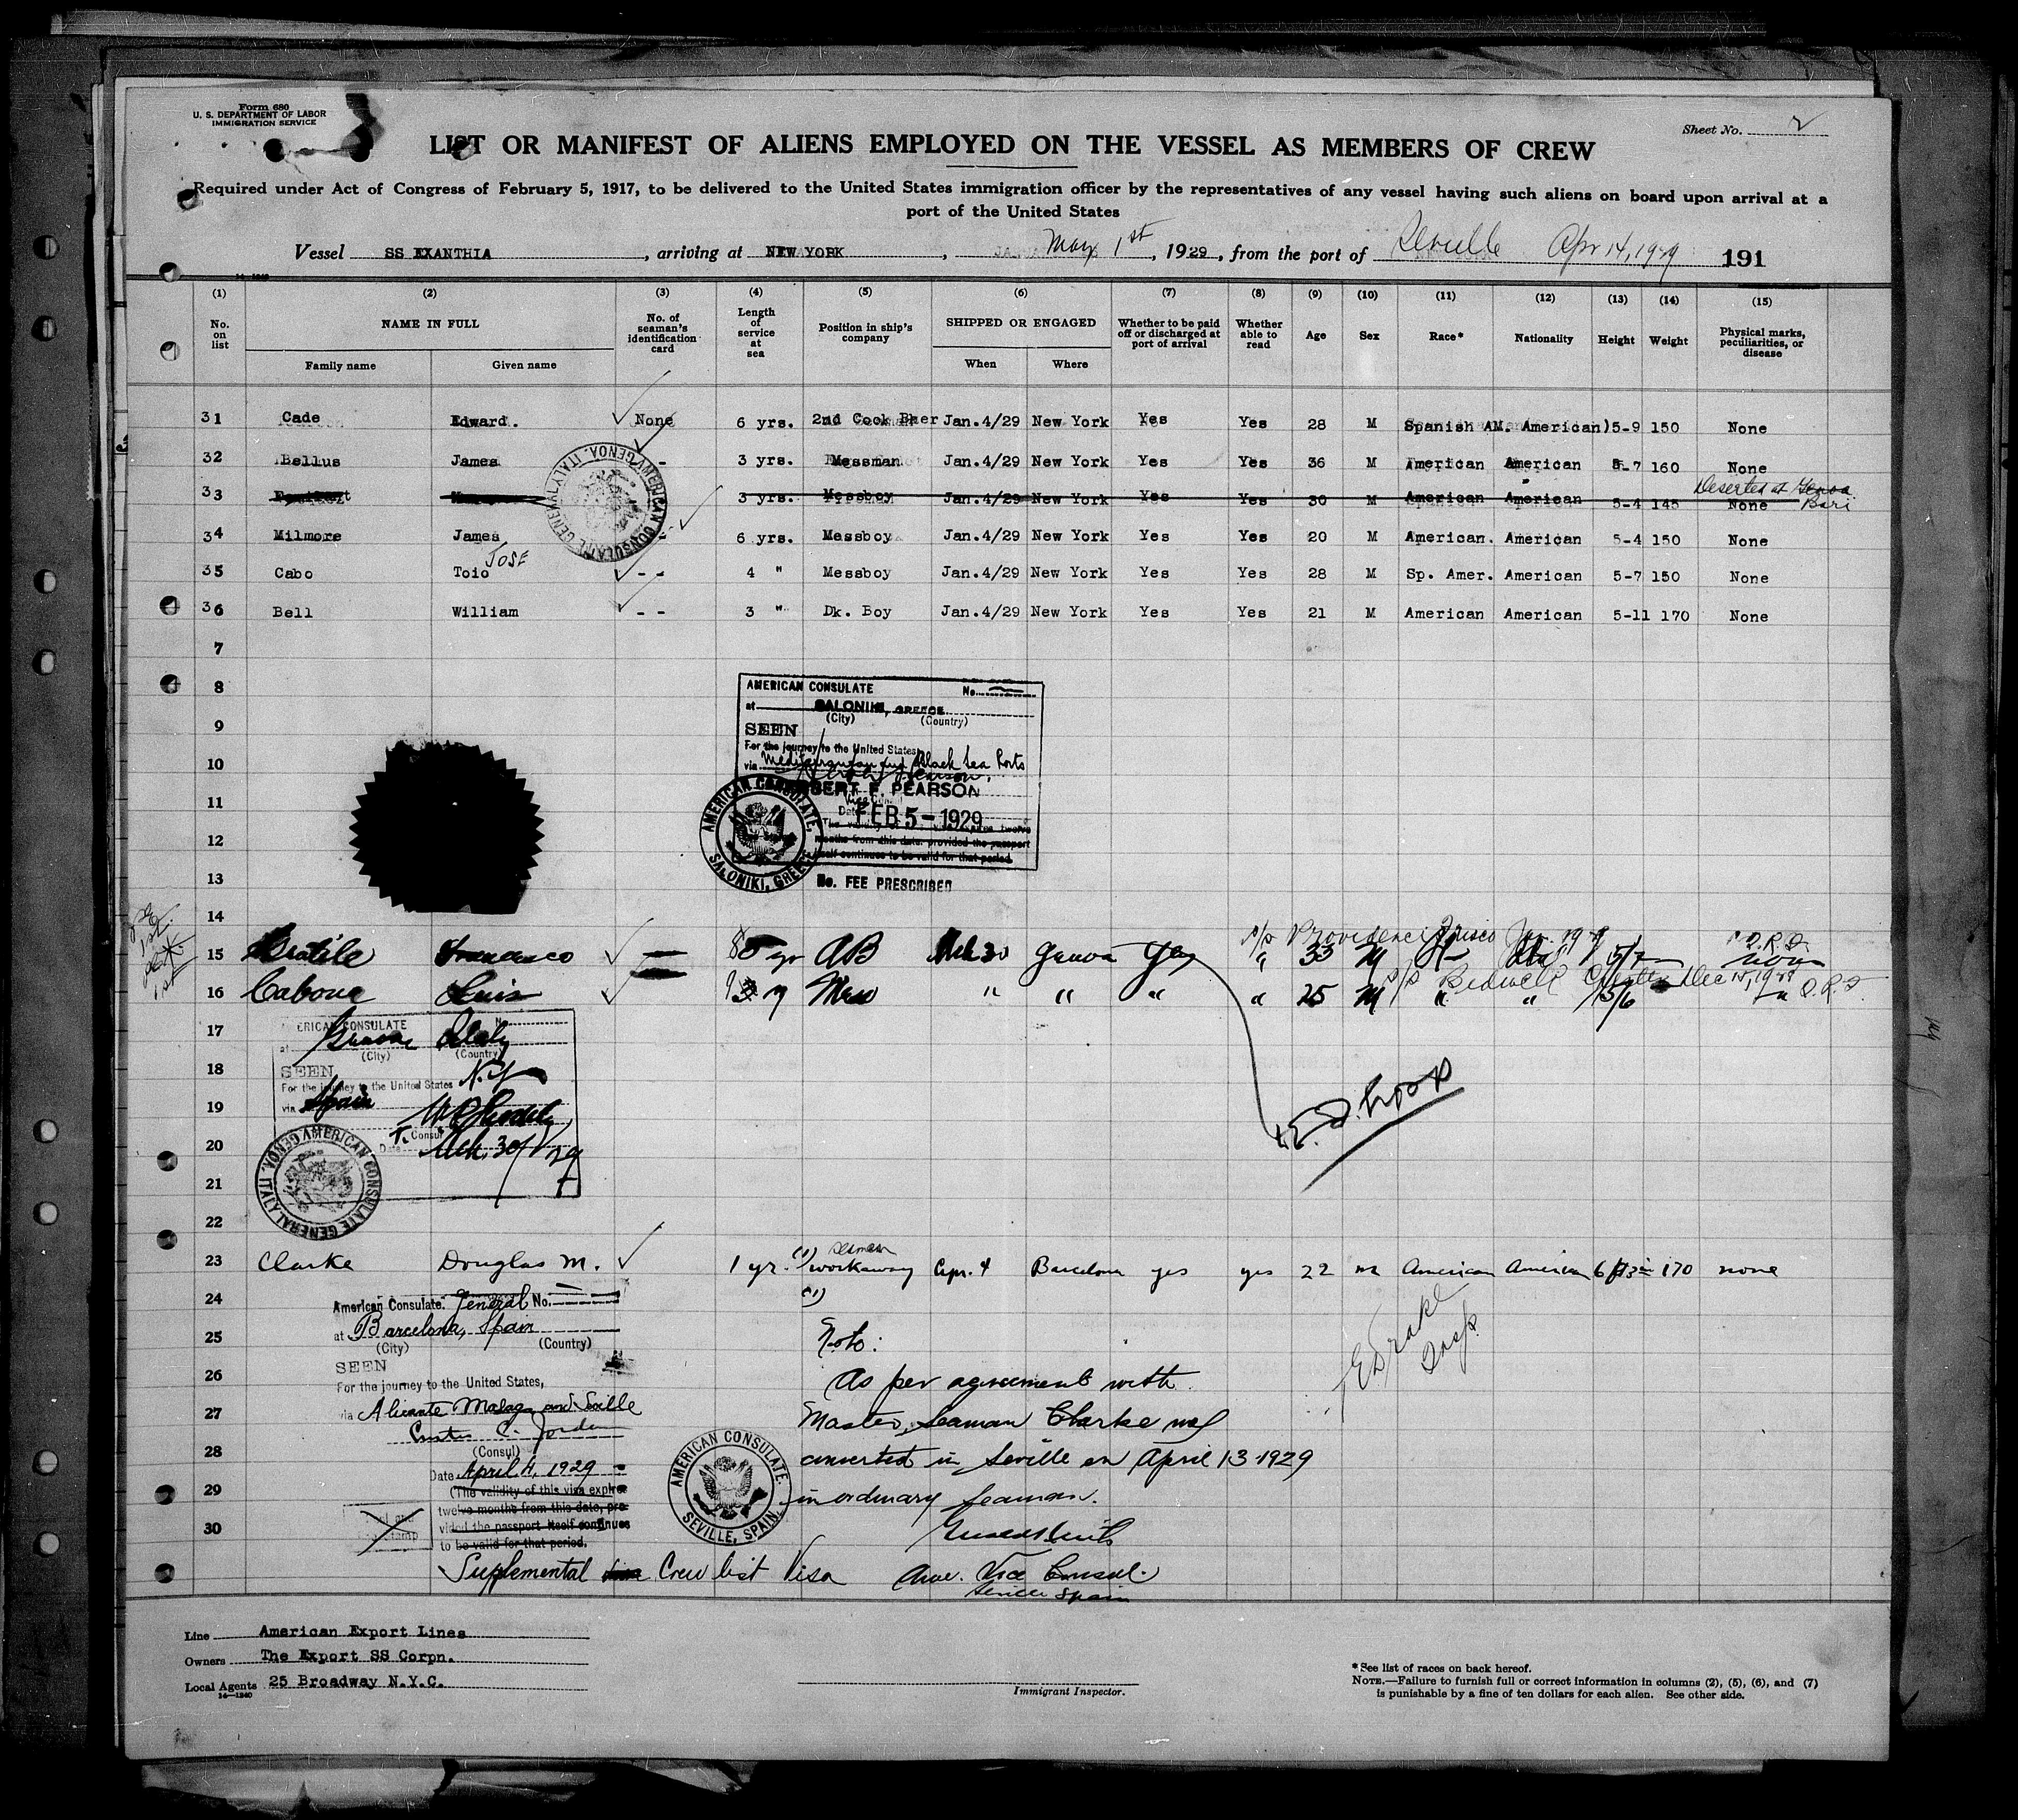 Form 680
U. S. DEPARTMENT OF LABOR
IMMIGRATION SERVICE
Sheet No. 2
LIST OR MANIFEST OF ALIENS EMPLOYED ON THE VESSEL AS MEMBERS OF CREW
Required under Act of Congress of February 5, 1917, to be delivered to the United States immigration officer by the representatives of any vessel having such aliens on board upon arrival at a
port of the United States
Vessel SS EXANTHIA, arriving at NEW YORK, May 1st, 1929, from the port of Seville Apr 14, 1929 191
(1) (2) (3) (4) (5) (6) (7) (8) (9) (10) (11) (12) (13) (14) (15)
No. on list
NAME IN FULL
Family name
Given name
No. of seaman's identification card
Length of service at sea
Position in ship's company
SHIPPED OR ENGAGED
When
Where
Whether to be paid off or discharged at port of arrival
Whether able to read
Age
Sex
Race*
Nationality
Height
Weight
Physical marks, peculiarities, or disease
31 Cade Edward. None 6 yrs. 2nd Cook Baer Jan.4/29 New York Yes Yes 28 M Spanish AM. American) 5-9 150 None
32 Bellus James - 3 yrs. Messman Jan.4/29 New York Yes Yes 36 M American American 5-7 160 None
33 3 yrs. Messboy Jan.4/29 New York Yes Yes 30 M American American 5-4 145 None Deserted at Genoa Bari
34 Milmore James - 6 yrs. Messboy Jan.4/29 New York Yes Yes 20 M American. American 5-4 150 None
35 Cabo Toio JOSE - - 4 " Messboy Jan.4/29 New York Yes Yes 28 M Sp. Amer. American 5-7 150 None
36 Bell William - - 3 " Dk. Boy Jan.4/29 New York Yes Yes 21 M American American 5-11 170 None
7
8
9
10
11
12
13
14
AMERICAN CONSULATE No.
at SALONIKI, GREECE
(City) (Country)
SEEN
For the journey to the United States
via Mediterranean and Black Sea Ports
F. PEARSON
Vice Consul
Date FEB 5 - 1929
The validity of twelve
months from this date, provided the passport
itself continues to be valid for that period
No. FEE PRESCRIBED
AMERICAN CONSULATE, SALONIKI, GREECE
AMERICAN CONSULATE GENERAL GENOA, ITALY
15 Francesco yr AB Mch 30 Genoa Yes " 33 M none
16 Cabona Luis " " " " 25 M " " 5/6
17
18
19
20
21
22
AMERICAN CONSULATE
at Genoa Italy
(City) (Country)
SEEN
For the journey to the United States N.Y.
via Spain
Consul
Date Mch. 30/29
AMERICAN CONSULATE GENERAL GENOA, ITALY
23 Clarke Douglas M. 1 yr. (1) seaman workaway Apr. 4 Barcelona yes yes 22 m American American 6 170 none
24
25
26
27
28
29
30
American Consulate General No.
at Barcelona, Spain
(City) (Country)
SEEN
For the journey to the United States,
via Alicante Malaga and Seville
(Consul)
Date April 4, 1929
(The validity of this visa expires
twelve months from this date, pro-
vided the passport itself continues
to be valid for that period.
Supplemental Crew list Visa
(1)
Note:
As per agreement with
Master, seaman Clarke was
converted in Seville on April 13 1929
in ordinary seaman.
Amer. Vice Consul.
Seville Spain
AMERICAN CONSULATE, SEVILLE, SPAIN
E Drake
Insp.
Line American Export Lines
Owners The Export SS Corpn.
Local Agents 25 Broadway N.Y.C.
Immigrant Inspector.
*See list of races on back hereof.
NOTE.—Failure to furnish full or correct information in columns (2), (5), (6), and (7)
is punishable by a fine of ten dollars for each alien. See other side.